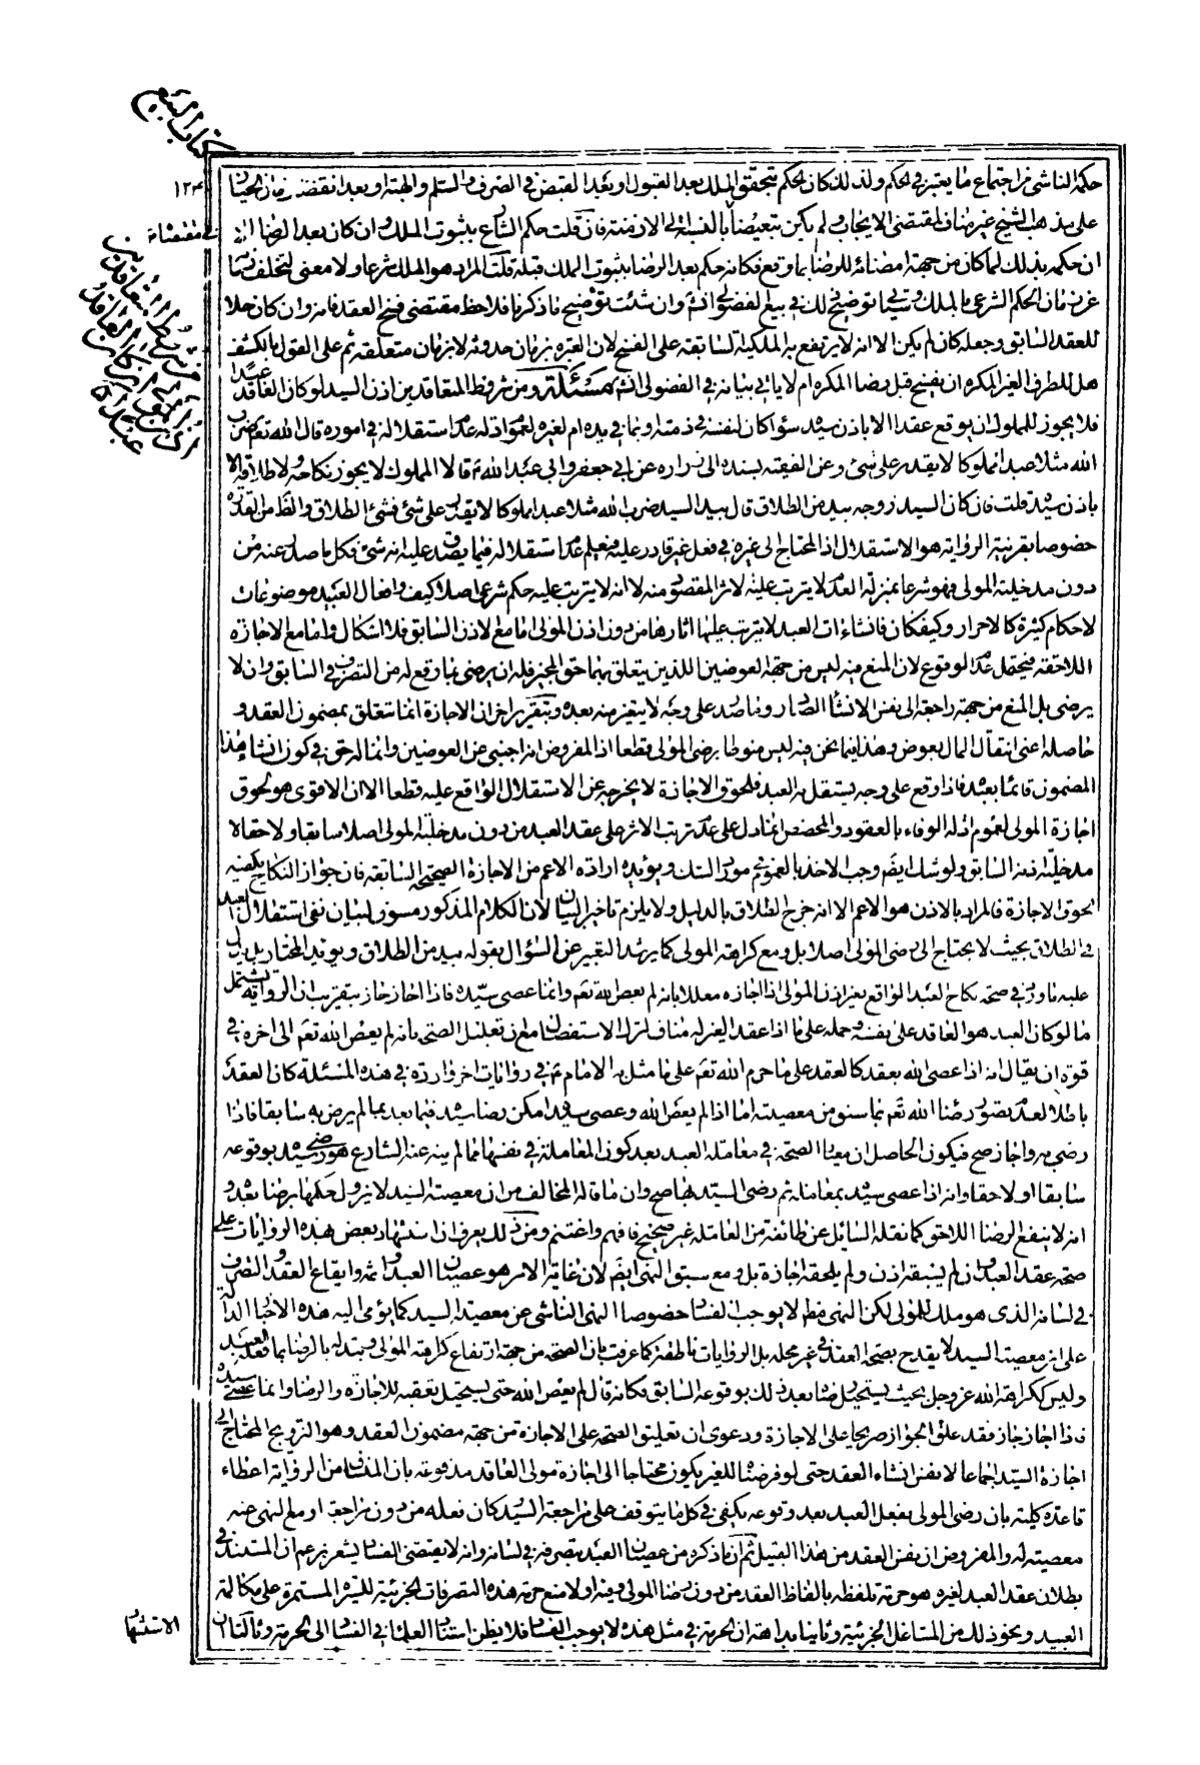 كتاب البيع
١٢٣
في مقتضاه
من شروط المتعاقدين
اذن المولى لو كان العاقد
عبدا
حكمه الناشى من اجتماع ما يعتبر في الحكم ولذلك كان الحكم بتحقق الملك بعد القبول او بعد القبض في الصرف والسلم والهبة او بعد انقضاء زمان الخيار
على مذهب الشيخ غير مناف لمقتضى الايجاب ولم يكن تبعيضا بالنسبة الى الازمنة فان قلت حكم الشارع بثبوت الملك وان كان بعد الرضا الا
ان حكمه بذلك لما كان من جهة امضائه للرضا بما وقع فكانه حكم بعد الرضا بثبوت الملك قبله قلت المراد هو الملك شرعا ولا معنى لتخلف زمانه
عن زمان الحكم الشرعي بالملك وسيأتي توضيح ذلك في بيع الفضولي انش وان شئت توضيح ما ذكرنا فلاحظ مقتضى فسخ العقد فانه وان كان حلا
للعقد السابق وجعله كان لم يكن الا انه لا يرتفع به الملكية السابقة على الفسخ لان العبرة بزمان حدوثه لا بزمان متعلقه ثم على القول بالكشف
هل للطرف الغير المكره ان يفسخ قبل رضا المكره ام لا ياتي بيانه في الفضولي انش مسئلة ومن شروط المتعاقدين اذن السيد لو كان العاقد عبدا
فلا يجوز للمملوك ان يوقع عقدا الا باذن سيده سواء كان لنفسه في ذمته او بما في يده ام لغيره لعموم ادلة عدم استقلاله في اموره قال الله تعم ضرب
الله مثلا عبدا مملوكا لا يقدر على شئ وعن الفقيه بسنده الى زرارة عن ابي جعفر وابي عبد الله ع قالا المملوك لا يجوز نكاحه ولا طلاقه الا
باذن سيده قلت فان كان السيد زوجه بيد من الطلاق قال بيد السيد ضرب الله مثلا عبدا مملوكا لا يقدر على شئ فشئ الطلاق والظ من القدرة
خصوصا بقرينة الرواية هو الاستقلال اذ المحتاج الى غيره في فعل غير قادر عليه فيعلم عدم استقلاله فيما يصدق عليه انه شئ فكل ما صدر عنه من
دون مدخلية المولى فهو شرعا بمنزلة العدم لا يترتب عليه الاثر المقصود منه لا انه لا يترتب عليه حكم شرعي اصلا كيف وافعال العبيد موضوعات
لاحكام كثيرة كالاحرار وكيف كان فانشاءات العبد لا يترتب عليها اثارها من دون اذن المولى اما مع الاذن السابق فلا اشكال واما مع الاجازة
اللاحقة فيحتمل عدم الوقوع لان المنع فيه ليس من جهة العوضين اللذين يتعلق بهما حق المجيز فله ان يرضى بما وقع له من التصرف في السابق وان لا
يرضى بل المنع من جهة راجعة الى نفس الانشاء الصادر وما صدر على وجه لا يتغير منه بعده وبتقرير اخر ان الاجازة انما تتعلق بمضمون العقد و
حاصله اعني انتقال المال بعوض وهذا فيما نحن فيه ليس منوطا برضى المولى قطعا اذ المفروض انه اجنبي عن العوضين وانما له حق في كون انشاء هذا
المضمون قائما بعبده فاذا وقع على وجه يستقل به العبد فلحوق الاجازة لا يخرجه عن الاستقلال الواقع عليه قطعا الا ان الاقوى هو لحوق
اجازة المولى لعموم ادلة الوفاء بالعقود والمخصص انما دل على عدم ترتب الاثر على عقد العبد من دون مدخلية المولى اصلا سابقا ولاحقا لا
مدخلية اذنه السابق ولو شك ايضم وجب الاخذ بالعموم في مورد الشك ويؤيد ارادة الاعم من الاجازة الصحيحة السابقة فان جواز النكاح يكفيه
لحوق الاجازة فالمراد بالاذن هو الاعم الا انه خرج الطلاق بالدليل ولا يلزم تاخير البيان لان الكلام المذكور مسوق لبيان نفى استقلال العبد
في الطلاق بحيث لا يحتاج الى رضى المولى اصلا بل ومع كراهة المولى كما يرشد التعبير عن السؤال بقوله بيد من الطلاق ويؤيد المختار بل يدل
عليه ما ورد في صحة نكاح العبد الواقع بغير اذن المولى اذا اجازه معللا بانه لم يعص الله تعم وانما عصى سيده فاذا اجاز جاز بتقريب ان الرواية تشمل
ما لو كان العبد هو العاقد على نفسه وحمله على ما اذا عقد الغير له مناف لترك الاستفصال مع ان تعليل الصحة بانه لم يعص الله تعم الى اخره في
قوة ان يقال انه اذا عصى الله بعقد كالعقد على ما حرم الله تعم على ما مثل به الامام ع في روايات اخر واردة في هذه المسئلة كان العقد
باطلا لعدم تصور رضا الله تعم بما سبق من معصيته اما اذا لم يعص الله وعصى سيده امكن رضا سيده فيما بعد بما لم يرض به سابقا فاذا
رضي به واجاز صح فيكون الحاصل ان معيار الصحة في معاملة العبد بعد كون المعاملة في نفسها مما لم ينه عنه الشارع هو رضى سيده بوقوعه
سابقا او لاحقا وانه اذا عصى سيده بمعاملة ثم رضى السيد بها صح وان ما قاله المخالف من ان معصية السيد لا يزول حكمها برضاه بعده و
انه لا ينفع الرضا اللاحق كما نقله السائل عن طائفة من العامة غير صحيح فافهم واغتنم ومن ذلك يعرف ان استشهاد بعض بهذه الروايات على
صحة عقد العبد وان لم يسبقه اذن ولم يلحقه اجازة بل ومع سبق النهى ايضم لان غاية الامر هو عصيان العبد واثمه وايقاع العقد والتصرف
في لسانه الذى هو ملك للمولى لكن النهى مطم لا يوجب الفساد خصوصا النهى الناشى عن معصية السيد كما يؤمى اليه هذه الاخبار الدالة
على ان معصية السيد لا يقدح بصحة العقد في غير محله بل الروايات ناطقة كما عرفت بان الصحة من جهة ارتفاع كراهة المولى وتبدله بالرضا بما فعله العبد
وليس ككراهة الله عز وجل بحيث يستحيل رضاه بعد ذلك بوقوعه السابق فكانه قال لم يعص الله حتى يستحيل تعقبه للاجازة والرضا وانما عصى سيده
فاذا اجاز جاز فقد علق الجواز صريحا على الاجازة ودعوى ان تعليق الصحة على الاجازة من جهة مضمون العقد وهو التزويج المحتاج الى
اجازة السيد اجماعا لا نفس انشاء العقد حتى لو فرضناه للغير يكون محتاجا الى اجازة مولى العاقد مدفوعة بان المنساق من الرواية اعطاء
قاعدة كلية بان رضى المولى بفعل العبد بعد وقوعه يكفي في كل ما يتوقف على مراجعة السيد كان فعله من دون مراجعة او مع النهى عنه
معصية له والمفروض ان نفس العقد من هذا القبيل ثم ان ما ذكره من عصيان العبد بتصرفه في لسانه وانه لا يقتضى الفساد يشعر بزعم ان المستند في
بطلان عقد العبد لغيره هو حرمة تلفظه بالفاظ العقد من دون رضا المولى وفيه اولا منع حرمة هذه التصرفات الجزئية للسيرة المستمرة على مكالمة
العبيد ونحو ذلك من المشاغل الجزئية وثانيا بداهة ان الحرمة في مثل هذه لا يوجب الفساد فلا يظن استناد العلماء في الفساد الى الحرمة وثالثا ان
الاستشهاد